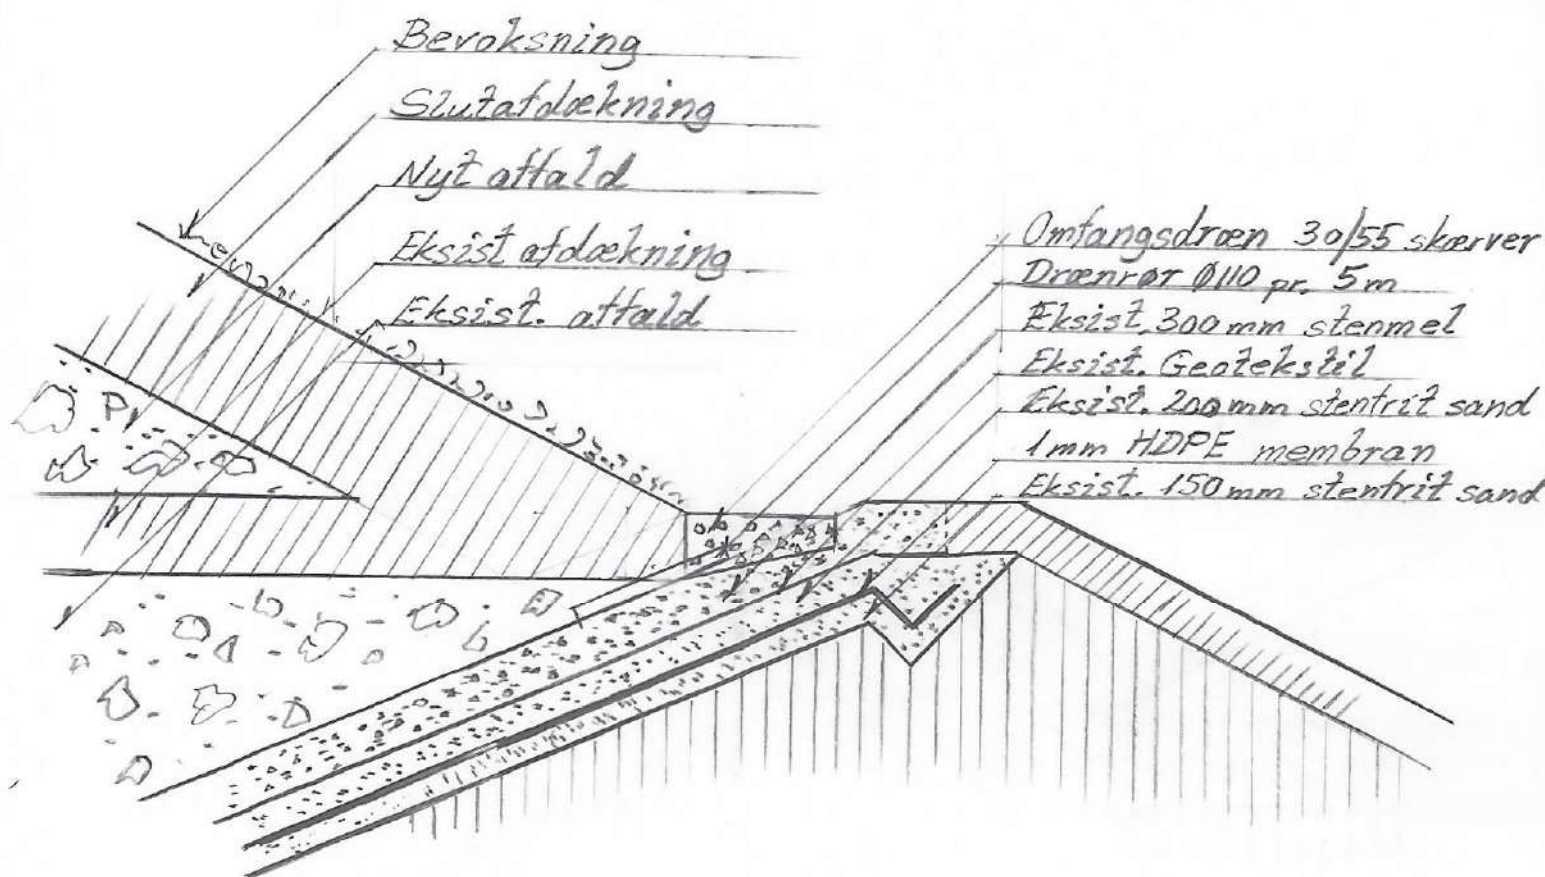 Bevoksning
Slutafdækning
Nyt affald
Eksist afdækning
Eksist. affald
Omfangsdræn 30/55 skærver
Drænrør Ø110 pr. 5m
Eksist. 300mm stenmel
Eksist. Geotekstil
Eksist. 200mm stentrit sand
1mm HDPE membran
Eksist. 150mm stentrit sand